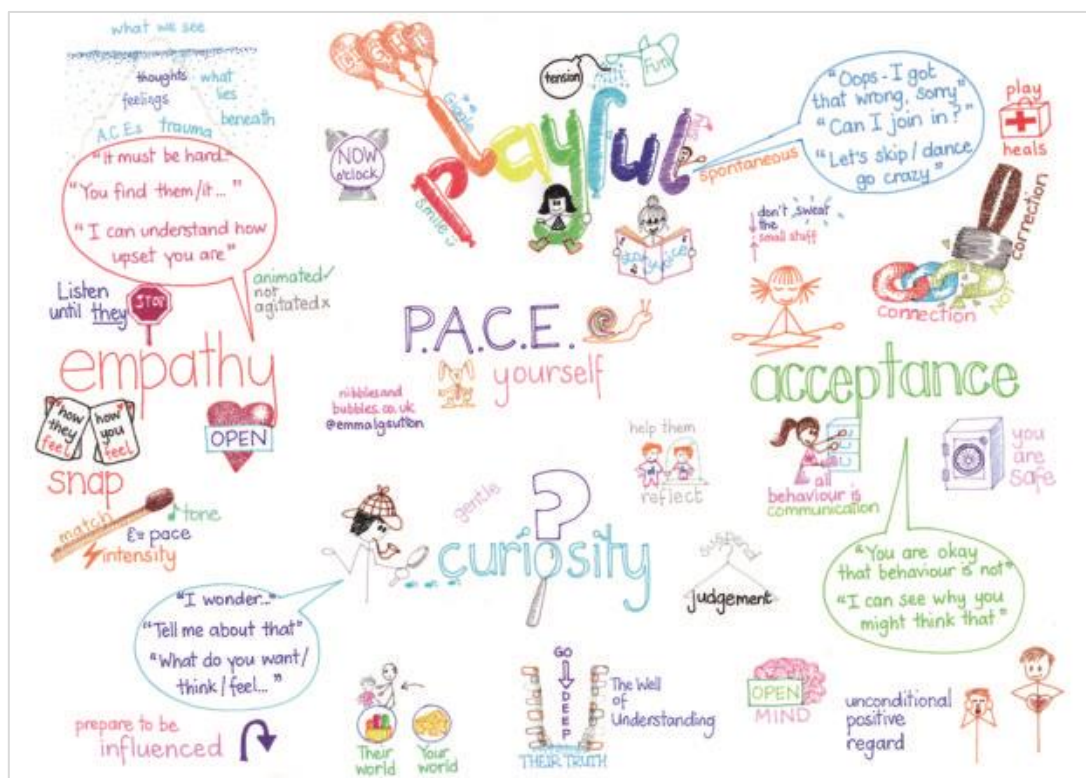 what we see
thoughts
feelings
what
lies
beneath
A.C.Es trauma
"It must be hard."
"You find them/it..."
"I can understand how
upset you are"
Listen
until they
STOP
animated✓
not
agitated x
empathy
how
they
feel
how
you
feel
snap
OPEN
match
tone
pace
intensity
Giggle
playful
Smile :)
NOW
o'clock
tension
Fun
spontaneous
"Oops - I got
that wrong, sorry"
"Can I join in?"
"Let's skip/dance
go crazy"
play
heals
don't sweat
the
small stuff
connection
NOT
correction
P.A.C.E.
yourself
nibblesand
bubbles.co.uk
@emmalgsutton
acceptance
all
behaviour is
communication
you
are
safe
"You are okay
that behaviour is not"
"I can see why you
might think that"
help them
reflect
gentle
?
curiosity
suspend
judgement
"I wonder..."
"Tell me about that"
"What do you want/
think/feel..."
prepare to be
influenced
Their
world
Your
world
GO
DEEP
The Well
of
Understanding
THEIR TRUTH
OPEN
MIND
unconditional
positive
regard